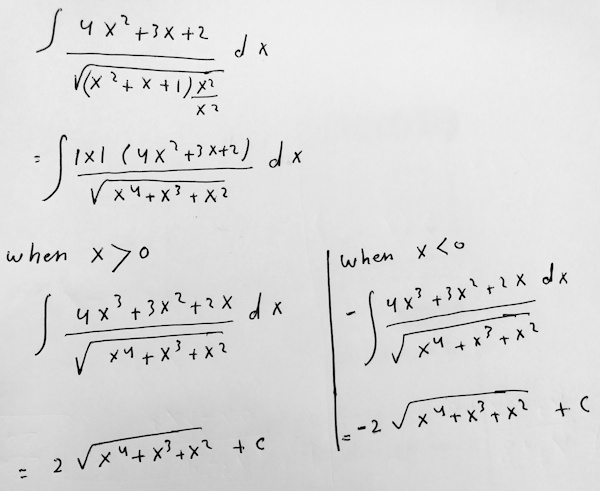 ∫ (4x²+3x+2) / √((x²+x+1) x²/x²) dx
= ∫ |x| (4x²+3x+2) / √(x⁴+x³+x²) dx
when x>0
∫ (4x³+3x²+2x) / √(x⁴+x³+x²) dx
= 2 √(x⁴+x³+x²) + C
when x<0
-∫ (4x³+3x²+2x) / √(x⁴+x³+x²) dx
= -2 √(x⁴+x³+x²) + C